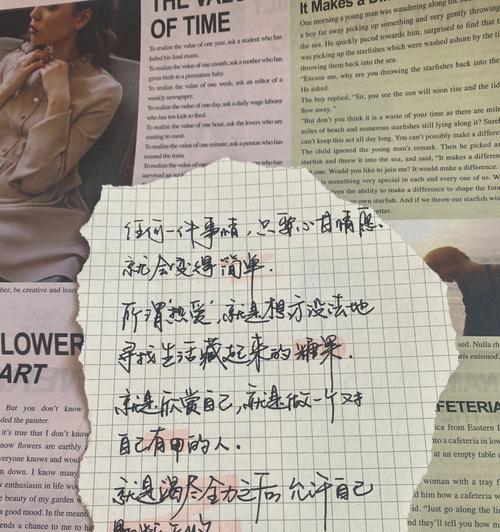 THE VALUE
OF TIME
To realize the value of one year, ask a student who has
failed his final exam.
To realize the value of one month, ask a mother who has
given birth to a premature baby.
To realize the value of one week, ask an editor of a
weekly newspaper.
To realize the value of one day, ask a daily wage laborer
who has ten kids to feed.
To realize the value of one hour, ask the lovers who are
waiting to meet.
To realize the value of one minute, ask a person who has
missed the train.
To realize the value of one
who has
survived an
It Makes a
One morning a young man was wandering along the
a boy far away picking up something and very gently throwing
the sea. He quickly paced towards him, surprised to find that
was picking up the starfishes which were washed ashore by the
throwing them back into the sea.
"Excuse me, why are you throwing the starfishes back into the
He asked.
The boy replied, "Sir, you see the sun will soon rise and the tide
flow away."
"But don't you think it is a waste of your time as there are
miles of beach and numerous starfishes still lying along it? Surely
can't keep this act all day long. You can't possibly make a differ
The child ignored the young man's remark. Then he picked
starfish and threw it into the sea, and said, "It makes a difference
one. Would you like to join me? It would make a difference.
is something very special in each and every one of us. W
the ability to make a difference to shape the futu
own starfish. And if we throw our starfish wis
任何一件事情，只要心甘情愿、
就会变得简单.
所谓'热爱',就是想方设法地
寻找生活藏起来的糖果.
就是欣赏自己,就是做一个对
自己有用的人.
就是竭尽全力之后,允许自己
ber, be creative and lear
LOWER
ART
But you don't know
ded the painter.
it's true that I don't know
now flowers are earthly
veryone knows and woul
n down. I know many
enthusiasm in life
e beauty of my garden
a good mood. In the
ends a chance to me to
sed. Nulla rh
ris euismod.
FETERIA
ica from Eastern E
to a cafeteria in low
at an empty table
woman with a tray f
d him how a cafeteria w
d. "Just go along the
nd they'll tell you how